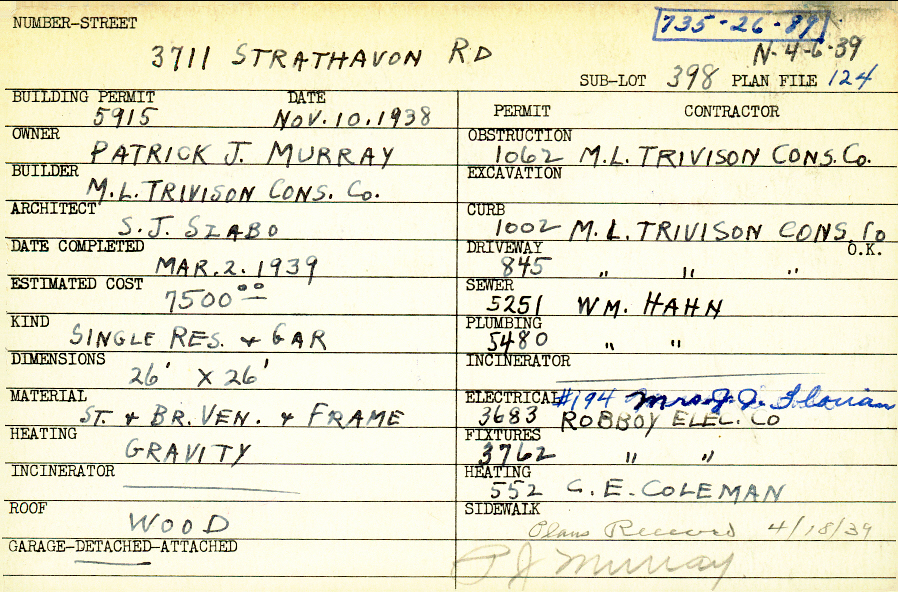 NUMBER-STREET
735-26-89
3711 STRATHAVON RD
N-4-6-39
SUB-LOT 398 PLAN FILE 124
BUILDING PERMIT DATE
5915 NOV. 10. 1938
OWNER
PATRICK J. MURRAY
BUILDER
M.L. TRIVISON CONS. Co.
ARCHITECT
S. J. SZABO
DATE COMPLETED
MAR. 2. 1939
ESTIMATED COST
7500 00
KIND
SINGLE RES. & GAR
DIMENSIONS
26' X 26'
MATERIAL
ST. & BR. VEN. & FRAME
HEATING
GRAVITY
INCINERATOR
ROOF
WOOD
GARAGE-DETACHED-ATTACHED
PERMIT CONTRACTOR
OBSTRUCTION
1062 M.L. TRIVISON CONS. Co.
EXCAVATION
CURB
1002 M. L. TRIVISON CONS. Co
DRIVEWAY O.K.
845 " " "
SEWER
5251 WM. HAHN
PLUMBING
5480 " "
INCINERATOR
ELECTRICAL #194 Mrs. J. J.
3683 ROBBOY ELEC. CO
FIXTURES
3762 " "
HEATING
552 C. E. COLEMAN
SIDEWALK
Plans Received 4/18/39
P J Murray